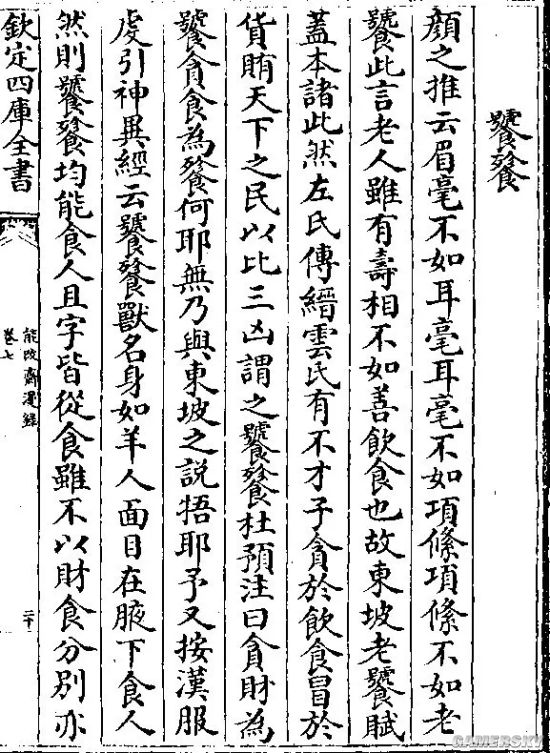 饕餮
顔之推云眉毫不如耳毫耳毫不如項絛項絛不如老
饕此言老人雖有壽相不如善飲食也故東坡老饕賦
蓋本諸此然左氏傳縉雲氏有不才子貪於飲食冒於
貨賄天下之民以比三凶謂之饕餮杜預注曰貪財為
饕貪食為餮何耶無乃與東坡之説牾耶予又按漢服
䖍引神異經云饕餮獸名身如羊人面目在腋下食人
然則饕餮均能食人且字皆從食雖不以財食分別亦
欽定四庫全書
能改齋漫録
卷七
二十
GAMERSKY